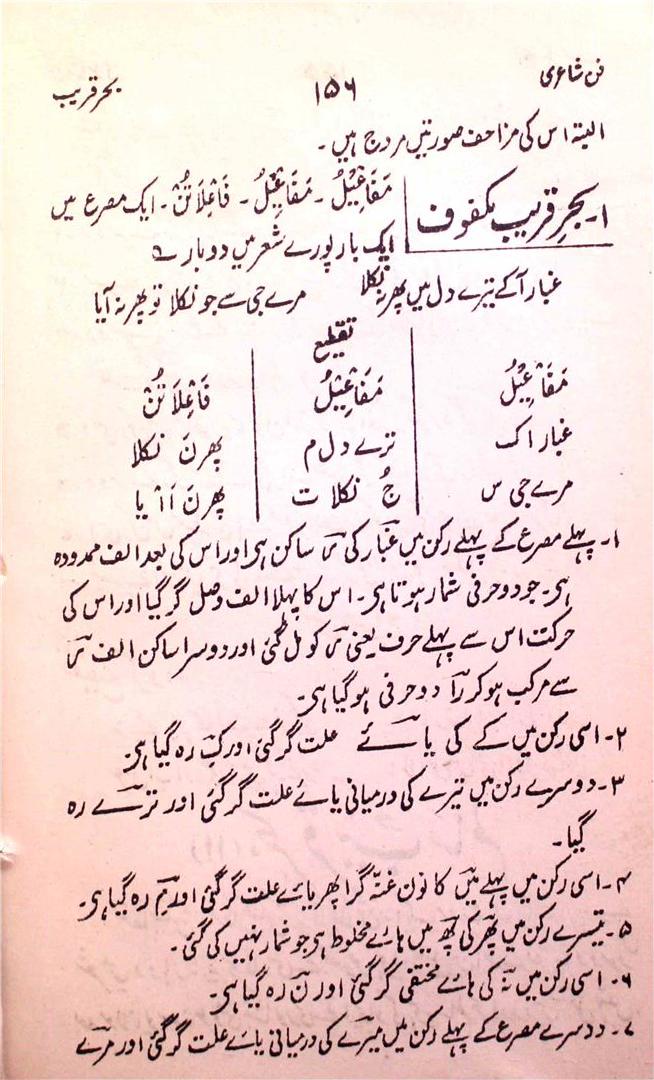 فن شاعری ۱۵۶ بحر قریب
البتہ اس کی مزاحف صورتیں مروج ہیں۔
۱۔ بحرِ قریب مکفوف
مَفَاعِیْلُ۔ مَفَاعِیْلُ۔ فَاعِلَاتُنْ۔ ایک مصرع میں
ایک بار پورے شعر میں دوبارے
غبار آ کے تیرے دل میں پھر نہ نکلا مرے جی سے جو نکلا تو پھر نہ آیا
تقطیع
مَفَاعِیْلُ مَفَاعِیْلُ فَاعِلَاتُنْ
غبار اک ترے دل م پھر نَ نکلا
مرے جی س جُ نکلا ت پھر نَ اَا یا
۱۔ پہلے مصرع کے پہلے رکن میں غبار کی ر ساکن ہی اور اس کی بعد الف ممدودہ
ہی۔ جو دو حرفی شمار ہوتا ہی۔ اس کا پہلا الف وصل گر گیا اور اس کی
حرکت اس سے پہلے حرف یعنی ر کو مل گئی اور دوسرا ساکن الف ر
سے مرکب ہو کر رَا دو حرفی ہو گیا ہی۔
۲۔ اسی رکن میں کے کی یائے علت گر گئی اور کِ رہ گیا ہی۔
۳۔ دوسرے رکن میں تیرے کی درمیانی یائے علت گر گئی اور ترے رہ
گیا۔
۴۔ اسی رکن میں پہلے میں کا نون غنّہ گرا پھر یائے علت گر گئی اور مِ رہ گیا ہی۔
۵۔ تیسرے رکن میں پھر کی پھ میں ہائے مخلوط ہی جو شمار نہیں کی گئی۔
۶۔ اسی رکن میں نہ کی ہائے مختفی گر گئی اور نَ رہ گیا ہی۔
۷۔ دوسرے مصرع کے پہلے رکن میں میرے کی درمیانی یائے علت گر گئی اور مرے